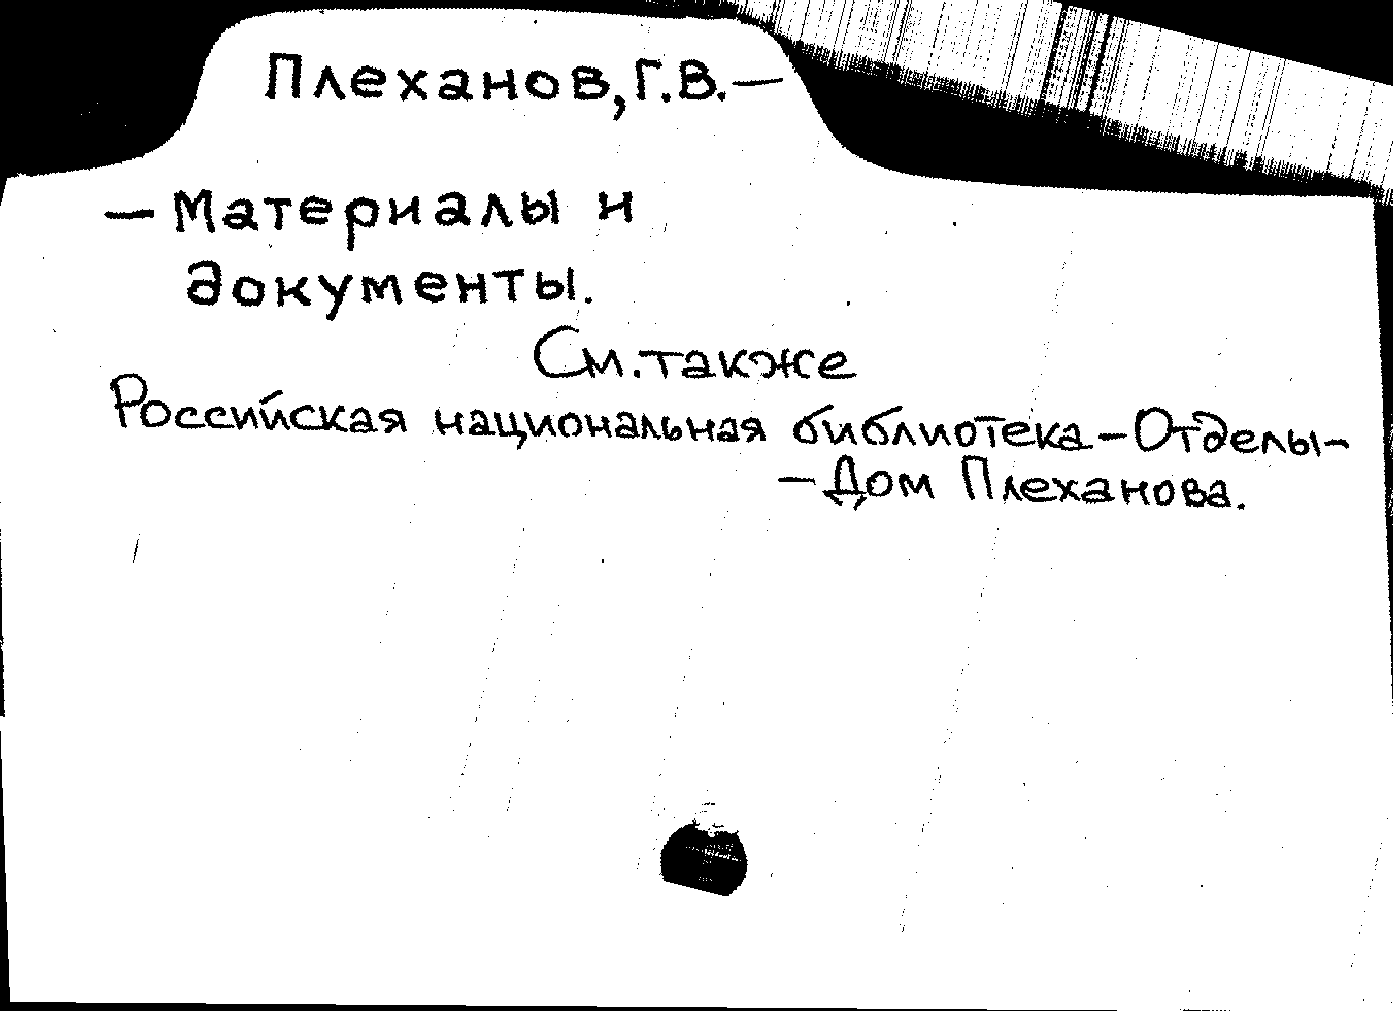 Плеханов, Г.В. —
— Материалы и
документы.
См. также
Российская национальная библиотека – Отделы –
– Дом Плеханова.